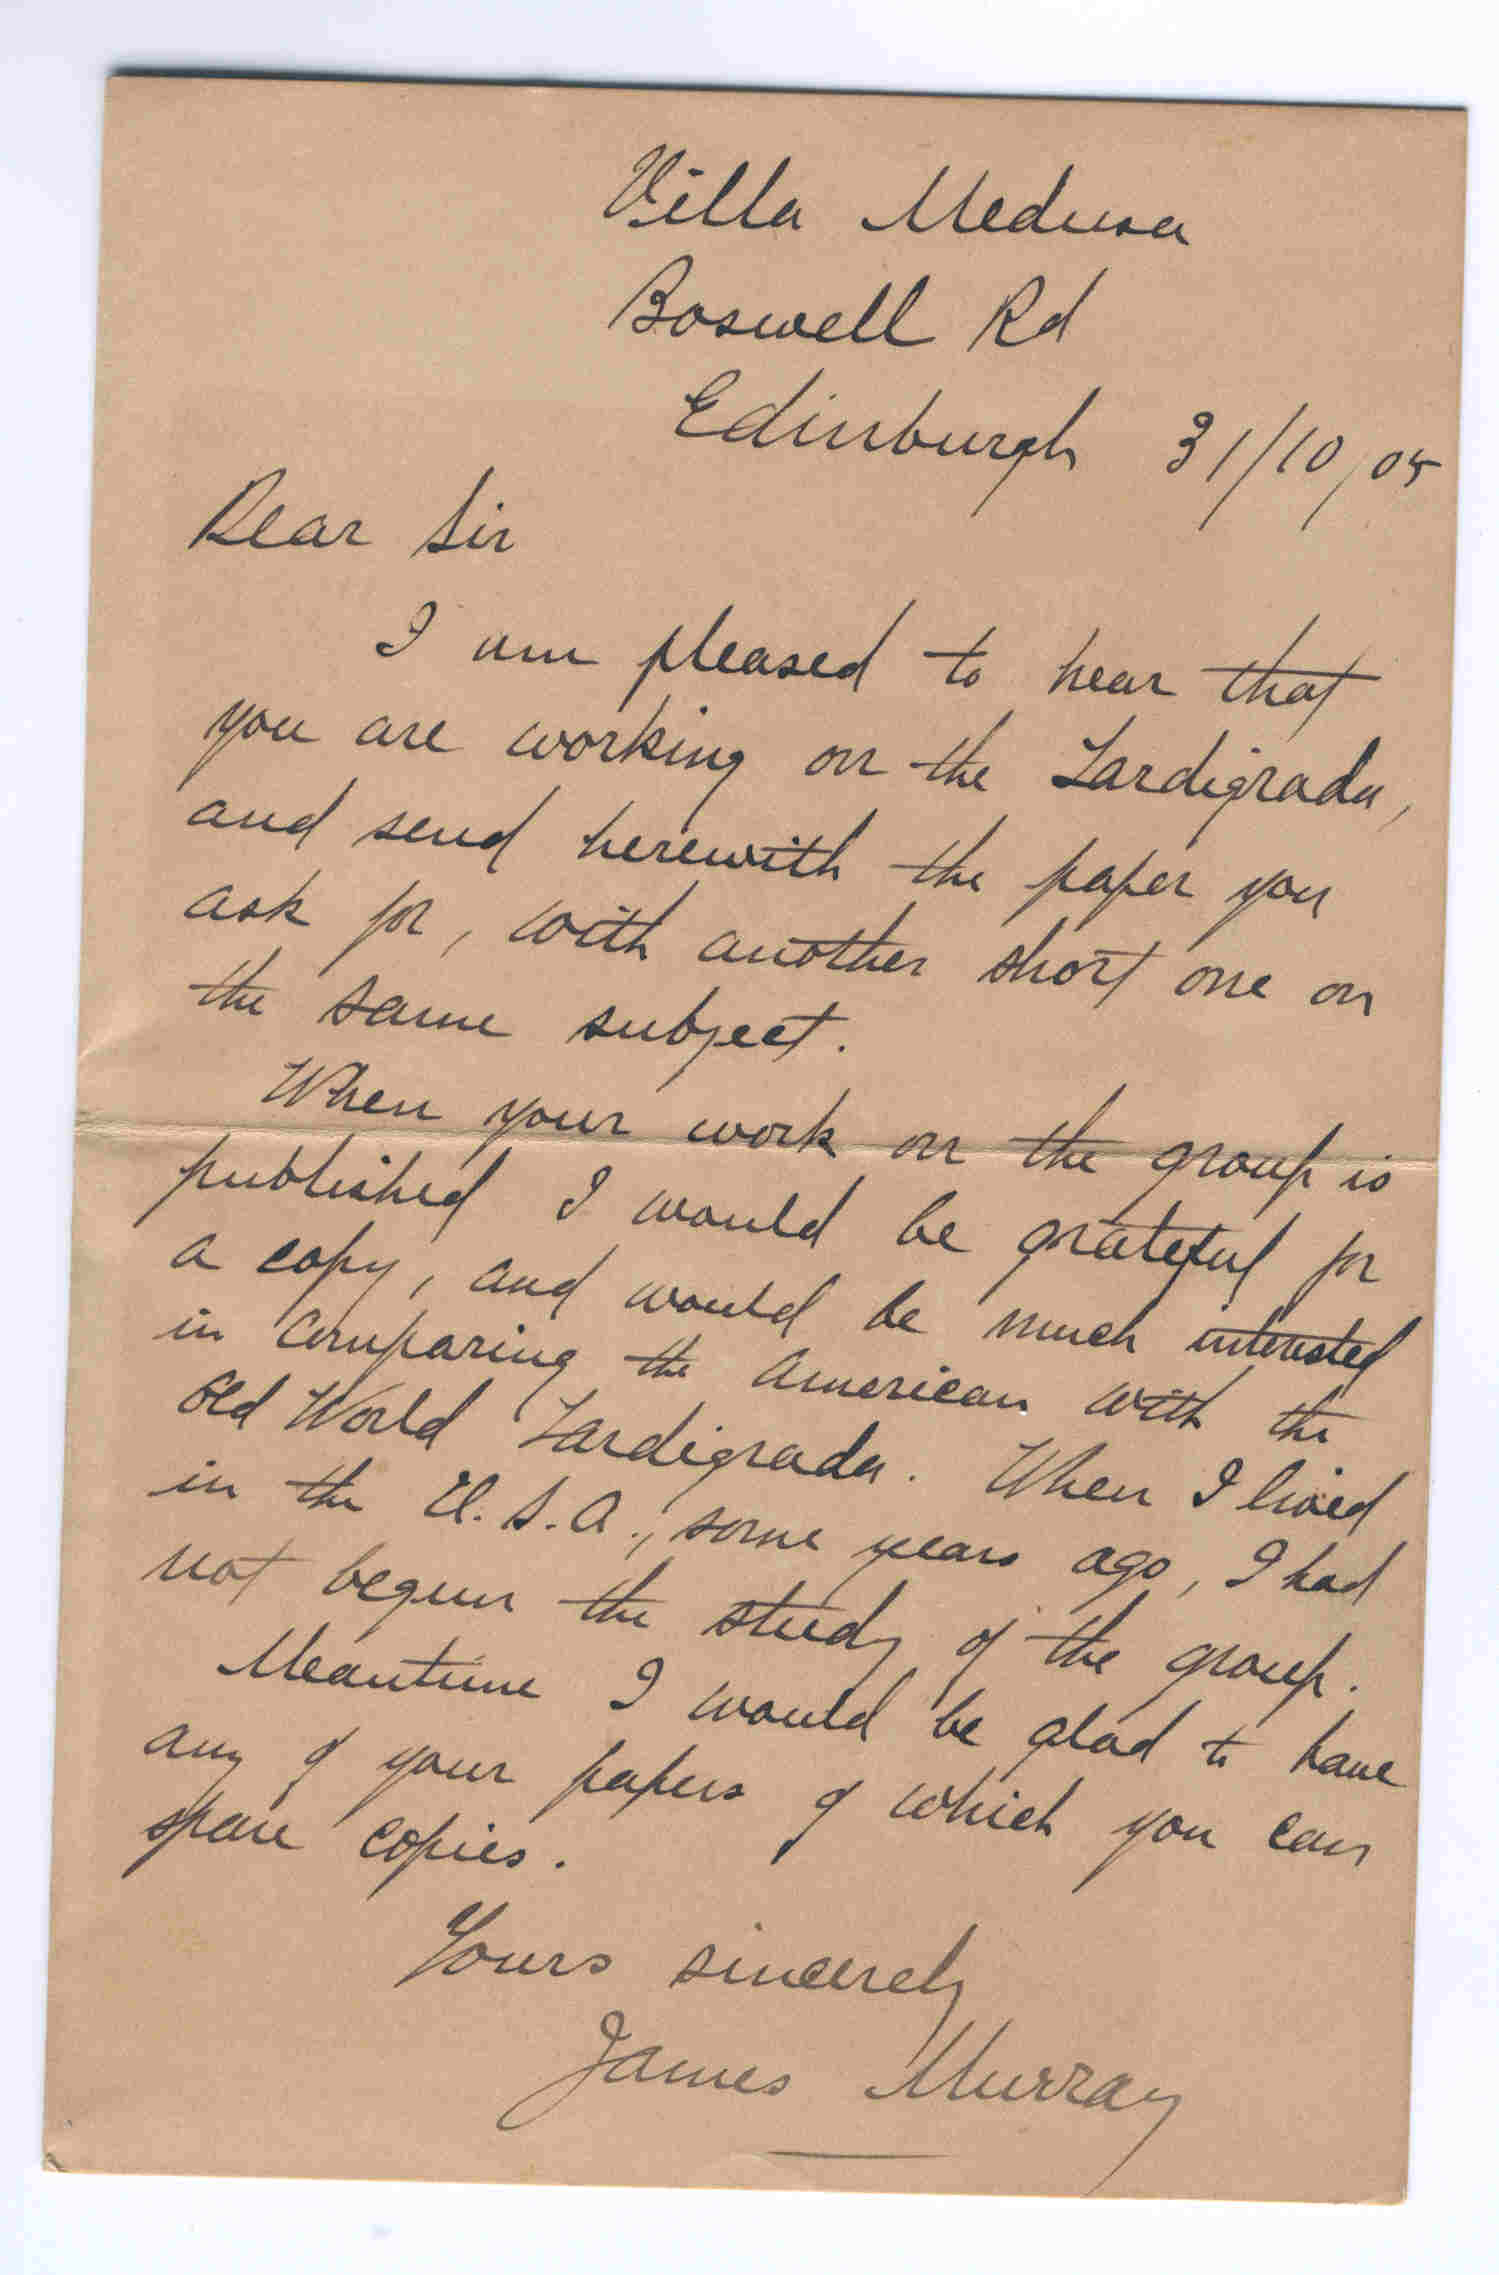 Villa Medusa
Boswell Rd
Edinburgh 31/10/05
Dear Sir
I am pleased to hear that
you are working on the Tardigrada,
and send herewith the paper you
ask for, with another short one on
the same subject.
When your work on the group is
published I would be grateful for
a copy, and would be much interested
in comparing the American with the
Old World Tardigrada. When I lived
in the U.S.A., some years ago, I had
not begun the study of the group.
Meantime I would be glad to have
any of your papers of which you can
spare copies.
Yours sincerely
James Murray